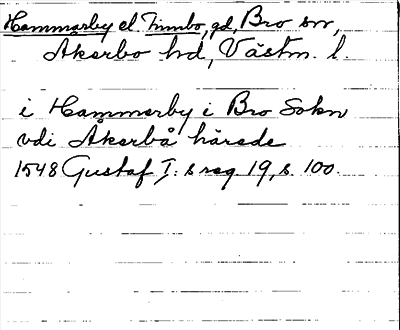 Hammarby el. Timbo, gd, Bro sn,
Åkerbo hd, Västm. l.
i Hammarby i Bro Sokn
vdi Åkerbå härade
1548 Gustaf I:s reg. 19, s. 100.